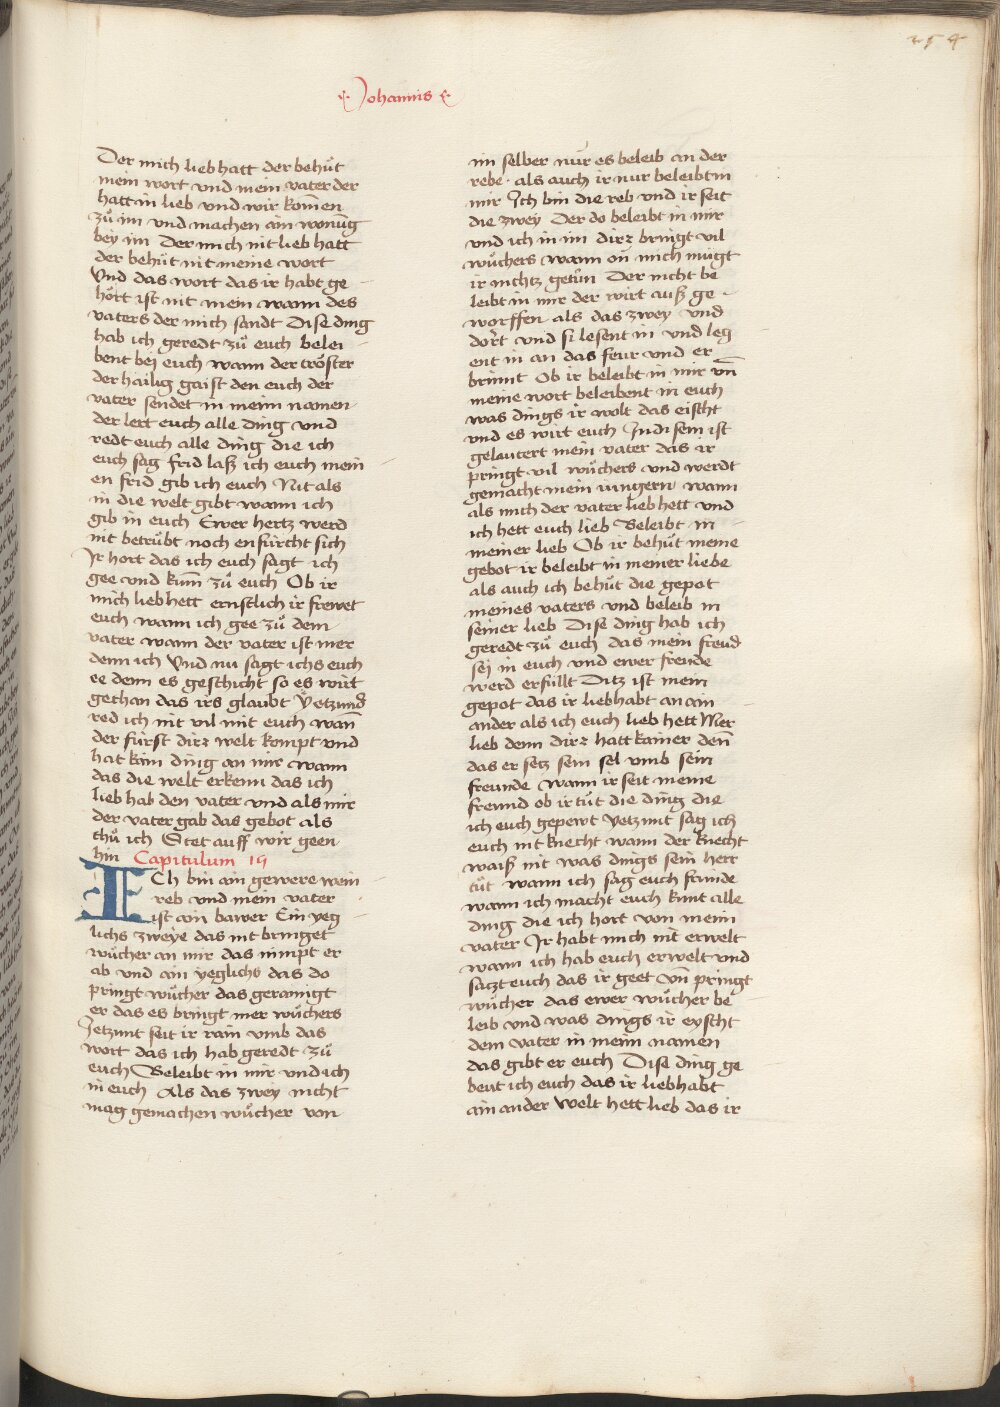 254
Johannis
Der mich lieb hatt der behuͤt
mein wort vnd mein vater der
hatt in lieb vnd wir kom̄en
zuͦ im vnd machen ain wonūg
bey im Der mich nit lieb hatt
der behuͤt nit meine wort
Vnd das wort das ir habt ge
hoͤrt ist nit mein wann des
vaters der mich sandt Dise ding
hab ich geredt zuͦ euch belei
bent bei euch wann der troͤster
der hailig gaist den euch der
vater sendet in meim namen
der lert euch alle ding vnd
redt euch alle ding die ich
euch sag frid laß ich euch mein
en frid gib ich euch Nit als
in die welt gibt wann ich
gib in euch Ewer hertz werd
nit betruͤbt noch enfurcht sich
Ir hort das ich euch sagt ich
gee vnd kum̄ zuͦ euch Ob ir
mich lieb hett ernstlich ir frewet
euch wann ich gee zuͦ dem
vater wann der vater ist mer
denn ich Vnd nu sagt ichs euch
ee denn es geschicht so es wirt
gethan das irs glaubt Yetzund
red ich nit vil mit euch wan̄
der fürst dirz welt kompt vnd
hat kain ding an mir wann
das die welt erkenn das ich
lieb hab den vater vnd als mir
der vater gab das gebot als
thuͦ ich Stet auff wir geen
hin Capitulum 15
ICh bin ain gewere wein
reb vnd mein vater
ist ain bawer Ein yeg
lichs zweye das nit bringet
wuͦcher an mir das nimpt er
ab vnd ain yeglichs das do
pringt wuͦcher das gerainigt
er das es bringt mer wuͦchers
Jetzunt seit ir rain vmb das
wort das ich hab geredt zuͦ
euch Beleibt in mir vnd ich
in euch Als das zwey nicht
mag gemachen wuͦcher von
im selber nur es beleib an der
rebe als auch ir nur beleibt in
mir Ich bin die reb vnd ir seit
die zwey Der do beleibt in mir
vnd ich in im dirz bringt vil
wuͦchers wann on mich mugt
ir nichtz getuͦn Der nicht be
leibt in mir der wirt auß ge
worffen als das zwey vnd
dort vnd si lesent in vnd leg
ent in an das feur vnd er
brinnt Ob ir beleibt in mir vn̄
meine wort beleibent in euch
was dings ir wolt das eischt
vnd es wirt euch In disem ist
gelautert mein vater das ir
pringt vil wuͦchers vnd werdt
gemacht mein iungern wann
als mich der vater lieb hett vnd
ich hett euch lieb Beleibt in
meiner lieb Ob ir behuͤt meine
gebot ir beleibt in meiner liebe
als auch ich behuͤt die gepot
meines vaters vnd beleib in
seiner lieb Dise ding hab ich
geredt zuͦ euch das mein freud
sej in euch vnd ewer freude
werd erfüllt Ditz ist mein
gepot das ir lieb habt an ain
ander als ich euch lieb hett Mer
lieb denn dirz hatt kainer den̄
das er setz sein sel vmb sein
freunde wann ir seit meine
freund ob ir tuͤt die ding die
ich euch gepewt Yetzunt sag ich
euch nit knecht wann der knecht
waiß nit was dings sein herr
tuͤt wann ich sag euch frunde
wann ich macht euch kunt alle
ding die ich hort von meim
vater Ir habt mich nit erwelt
wann ich hab euch erwelt vnd
satzt euch das ir geet vn̄ pringt
wuͦcher das ewer wuͦcher be
leib vnd was dings ir eyscht
dem vater in meim namen
das gibt er euch Dise ding ge
beut ich euch das ir lieb habt
ain ander Welt hett lieb das ir